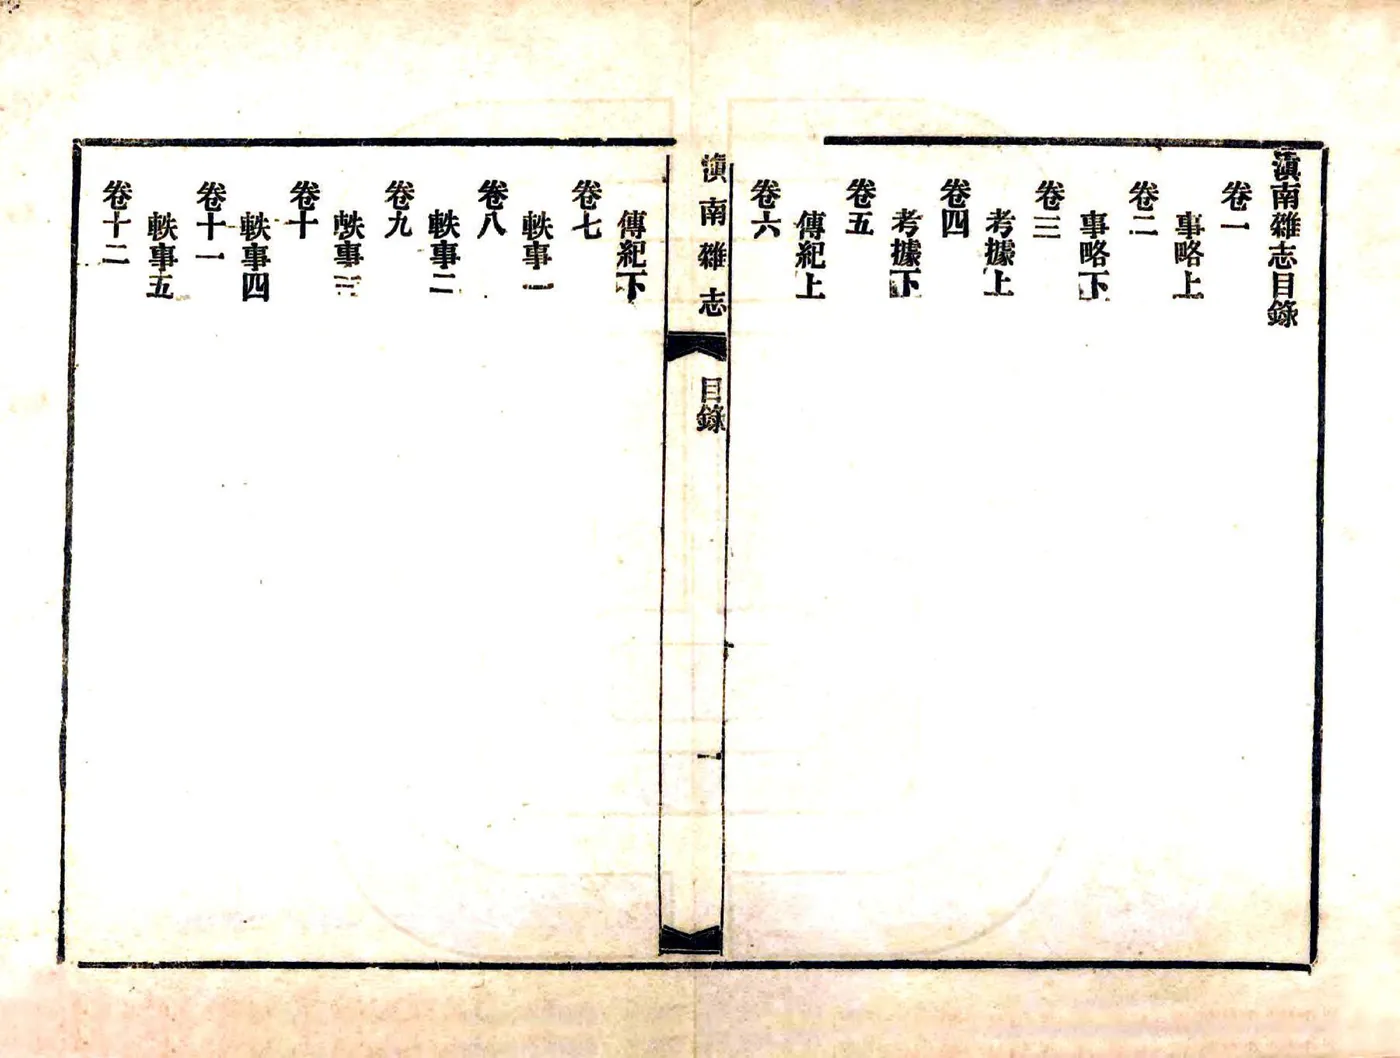 滇南雜志目錄
卷一
事略上
卷二
事略下
卷三
考據上
卷四
考據下
卷五
傳紀上
卷六
滇南雜志
目錄
一
傳紀下
卷七
軼事一
卷八
軼事二
卷九
軼事三
卷十
軼事四
卷十一
軼事五
卷十二